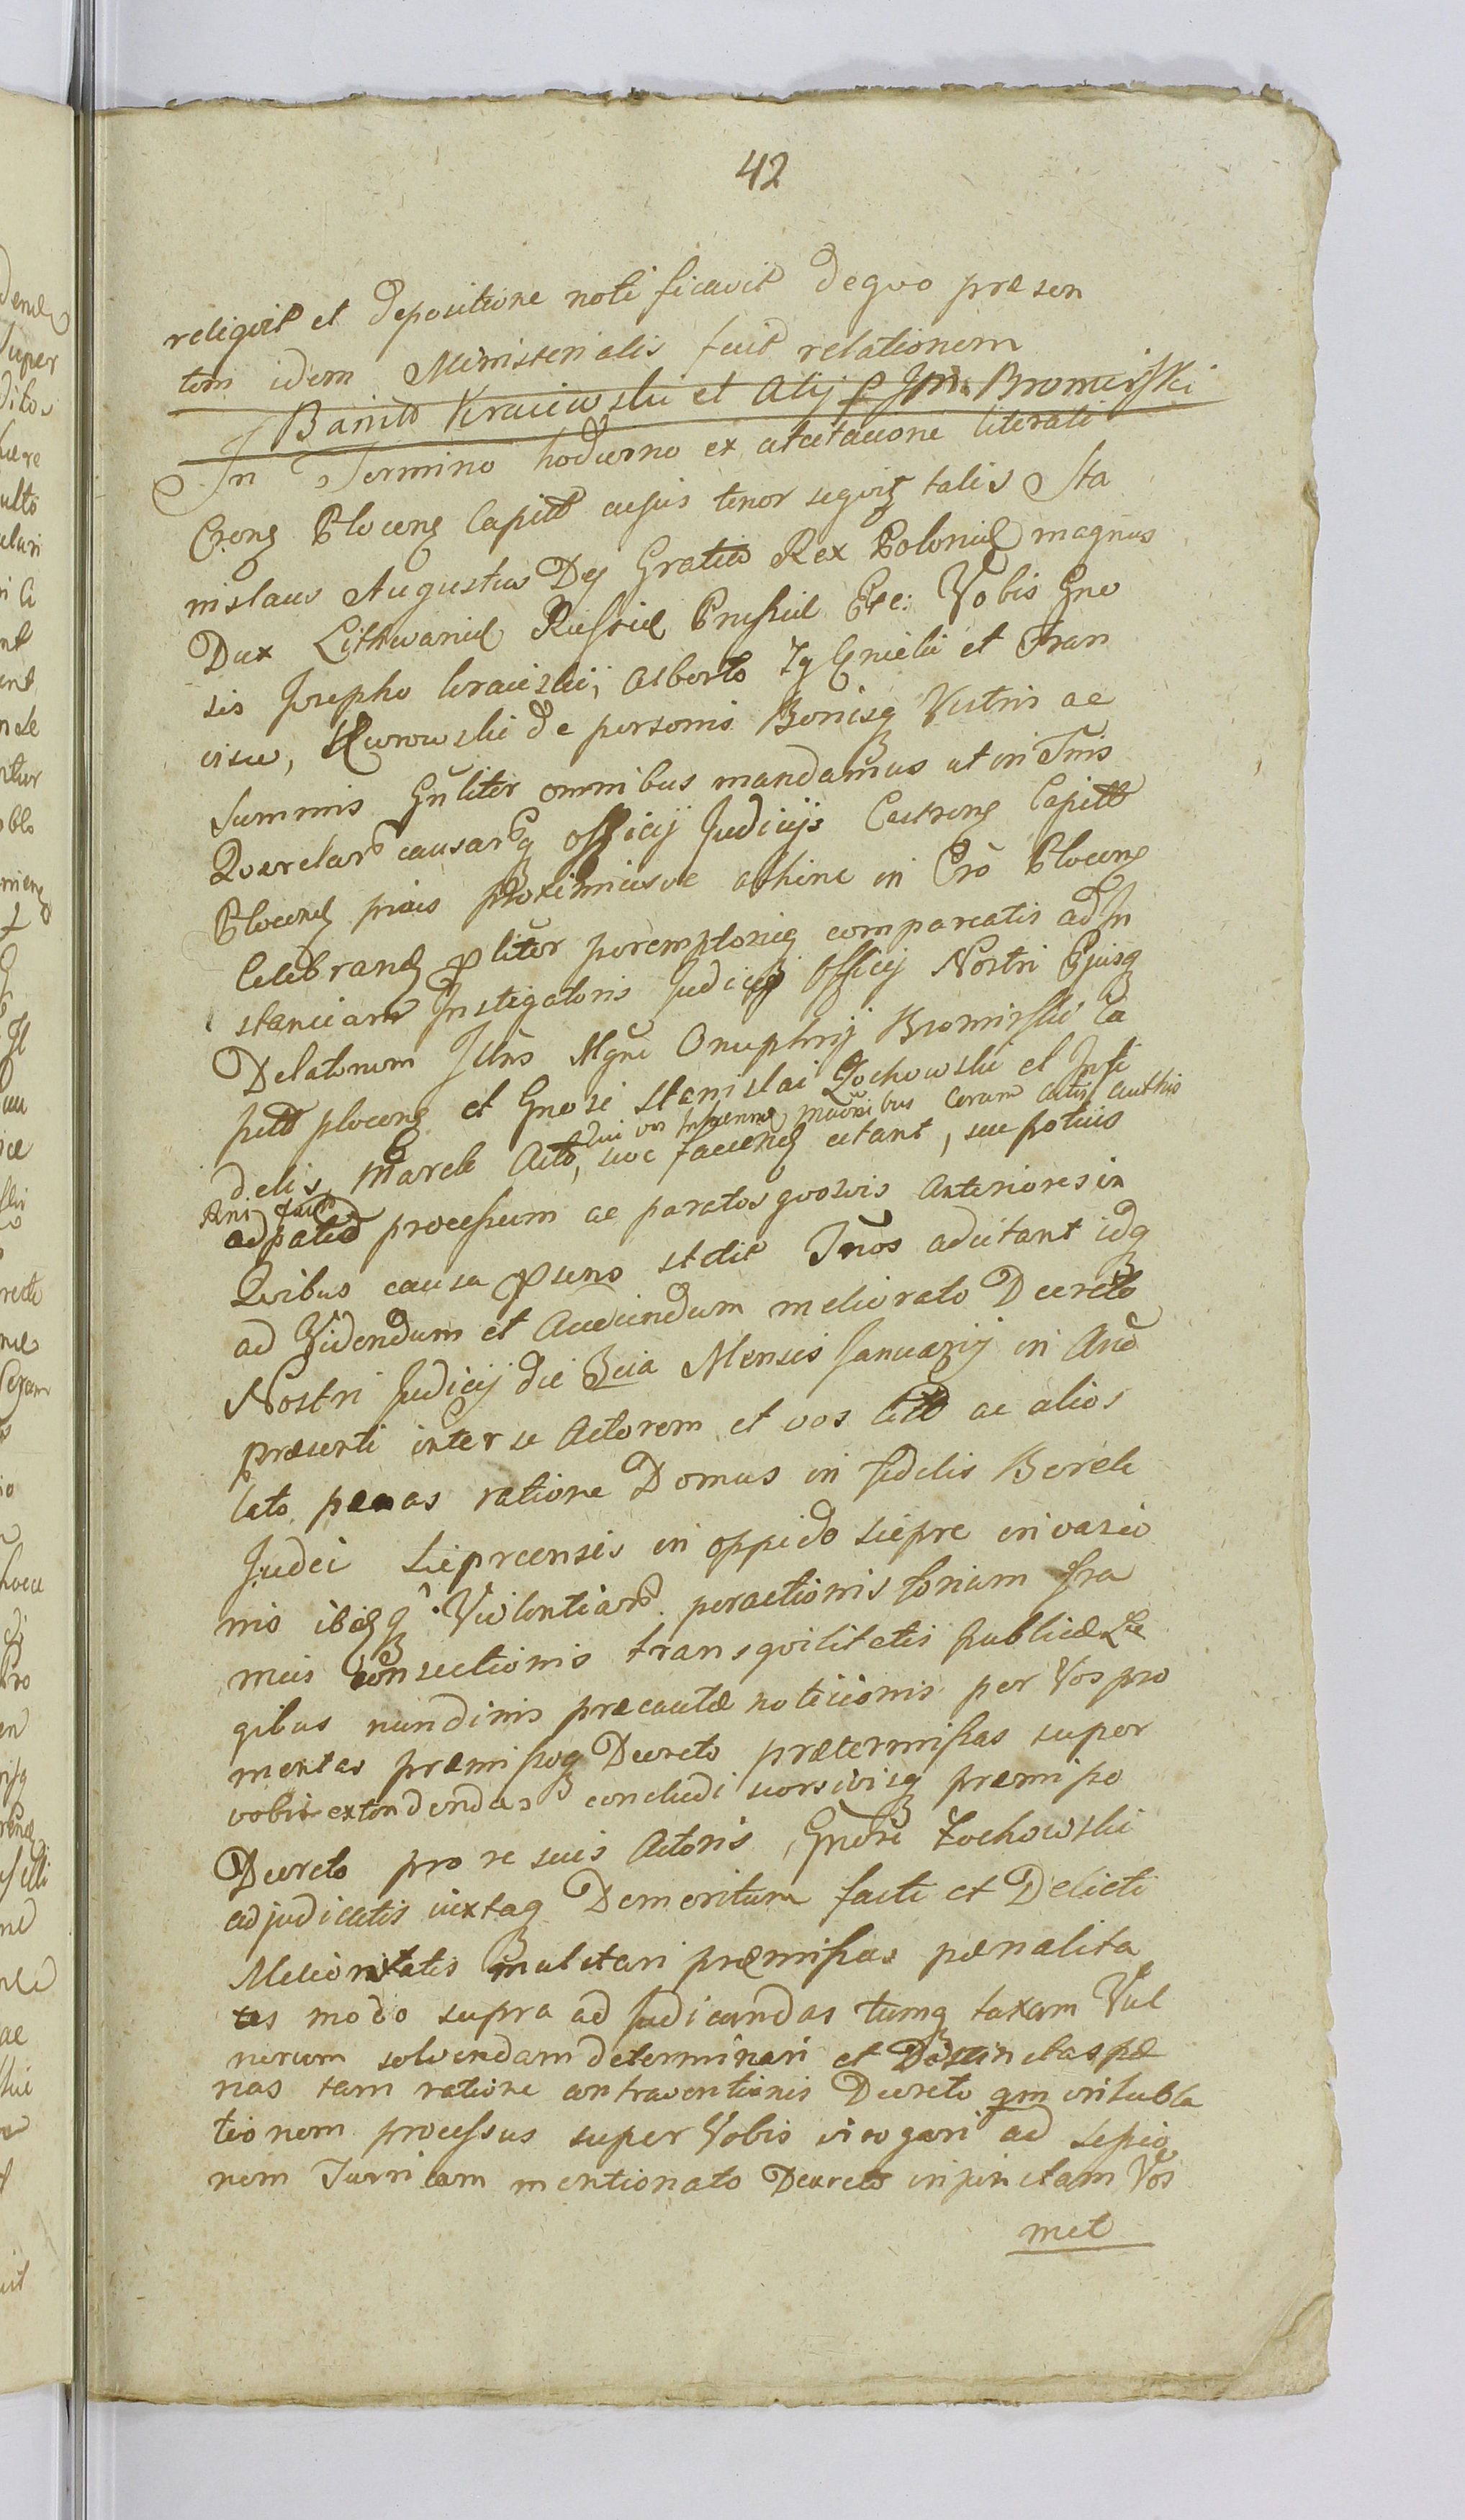 42
religvit et depositione notificavit deqvo præsen
tem idem Ministerialis fecit relationem
Banito Kraiewski et Alij p Jm. Bromirski
In Termino hodierno ex citatione literali
Crens Plocens Capitt cujus tenor seqvitz talis Sta
nislaus Augustus Dei Gratia Rex Poloniæ magnus
Dux Lithvaniæ Russiæ Prussiæ Etc: Vobis Gne
sis Josepho Kraiewski, Alberto et Fran
cisco, Kurowski de personis Bonisq Vestris ac
summis Gnliter omnibus mandamus ut in Tmis
Qverelar causarq officij Judicijs Castrens Capitt
Plocens priais proximiusve abhinc in Cro Plocens
Celebrand pliter peremptorieq compareatis ad In
stanciam Instigatoris Judicij Officij Nostri Ejusq
Delatorum Illris Mgni Onuphrij Bromirski Ca
pitt plocens et Gnosi Stanislai Zochowski et Infi
delis Marek Acto, sive faciend citant, seu potius
qui vos Inhærend maonibus Coram actis authis
adpatid processum ac paratos qvosvis Anteriores in
Qvibus causa psens stetit Inos adcitant idq
ad Videndum et Audiendum meliorato Decreto
Nostri Judicij die 3cia Mensis Januarij in Ano
præsenti inter se Actorem et vos Citto ac alios
lato pænas ratione Domus in fidelis Berek
Judei Sieprcensis in oppido Siepre invasio
nis ibidq Violentiar peractionis foriam fra
meis consectionis tranqvilitatis publicæ Le
gibus nundinis præcautæ noticionis per Vos pro
mentas præmissoq Decreto prætermissas super
vobis extendendas concludi seorsivisq præmisso
Decreto pro re suis Actoris Gnosi Zochowski
adjudicatis iuxtaq Demeritum facti et Delicti
Melioritatis mulctari præmissas pænalita
tes modo supra adjudicandas tumq taxam Vul
nerum solvendam determinari et Distinctas pæ
nas tam ratione contraventionis Decreto qm intubla
tionem processus super Vobis irrogari ad sessio
nem Turriciam mentionato Decreto injunctam Vos
met